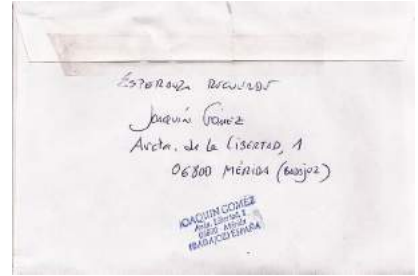 ESPERANZA
Joaquín Gómez
Avda. de la LIBERTAD, 1
06800 MÉRIDA (BADAJOZ)
JOAQUIN GOMEZ
Avda. Libertad, 1
06800 Mérida
(BADAJOZ) ESPAÑA